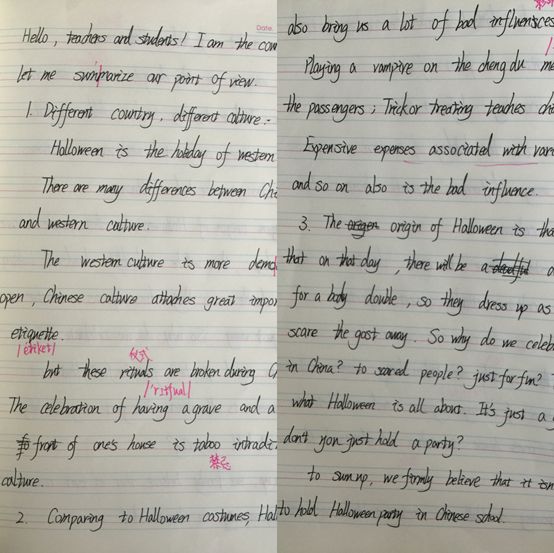 Date.
Hello, teachers and students! I am the
let me summarize our point of view.
1. Different country, different culture.
Halloween is the holiday of western
There are many differences between
and western culture.
The western culture is more
open, Chinese culture attaches great
etiquette.
/ˈetiket/
仪式
but these rituals are broken during
/ˈritʃual/
The celebration of having a grave and a
front of one's house is taboo
禁忌
culture.
2. Comparing to Halloween costumes,
also bring us a lot of bad influences
Playing a vampire on the chengdu
the passengers; Trick or treating teaches
Expensive expenses associated with
and so on also is the bad influence.
3. The origen origin of Halloween is
that on that day, there will be a
for a body double, so they dress up as
scare the gost away. So why do we
in China? to scared people? just for fun?
what Halloween is all about. It's just a
don't you just hold a party?
to sum up, we firmly believe that it
to hold Halloween party in Chinese school.